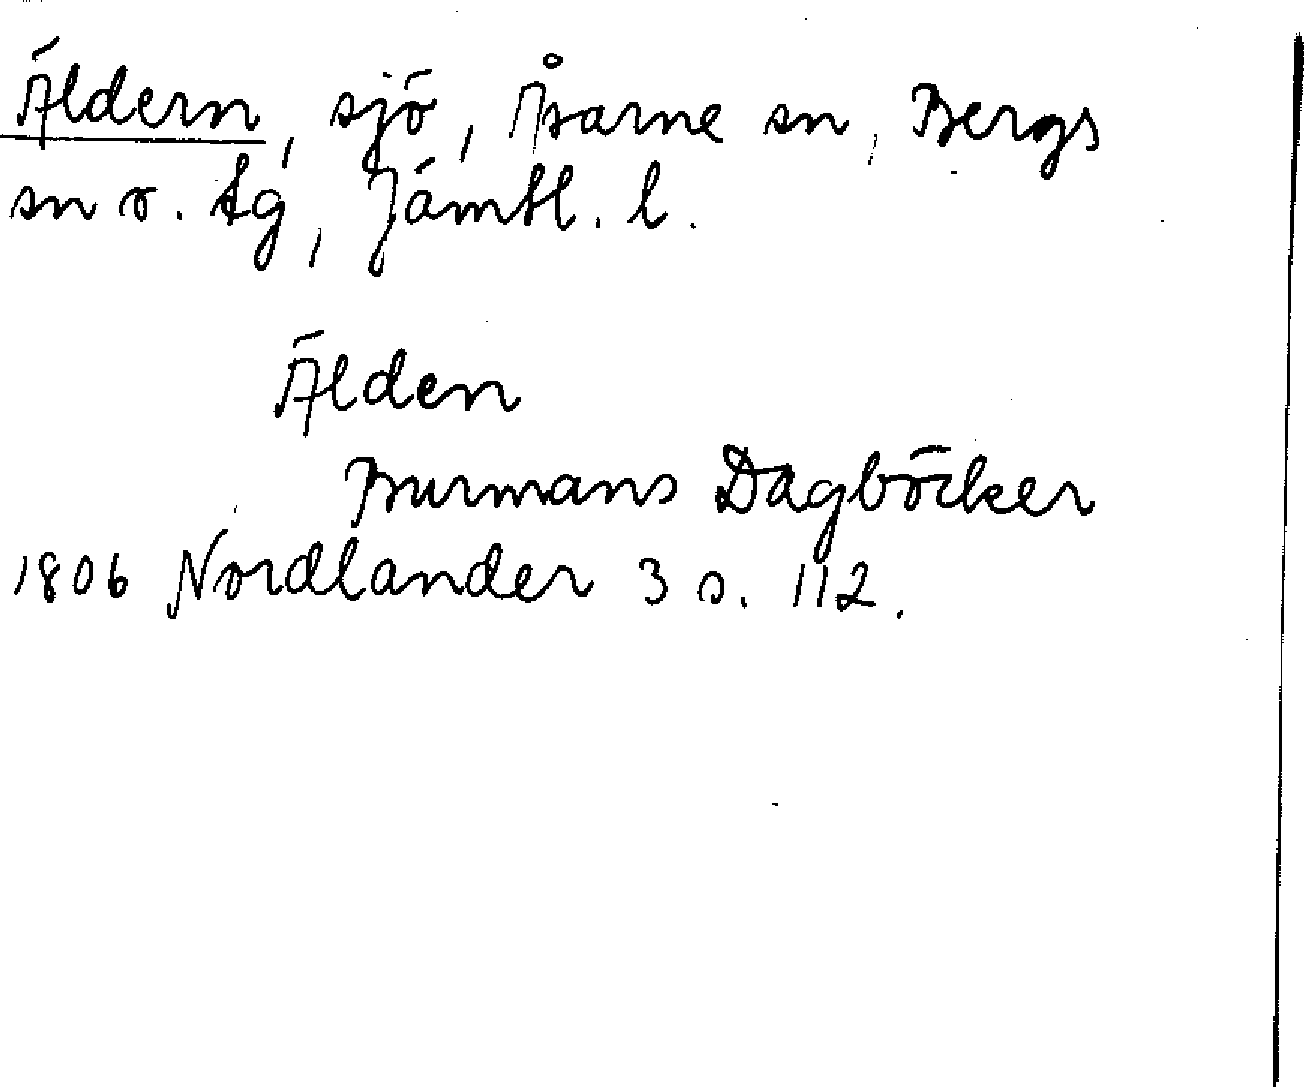 Äldern, sjö, Åsarne sn, Bergs
sn o. tg, Jämtl. l.
Älden
Burmans Dagböcker
1806 Nordlander 3 s. 112.